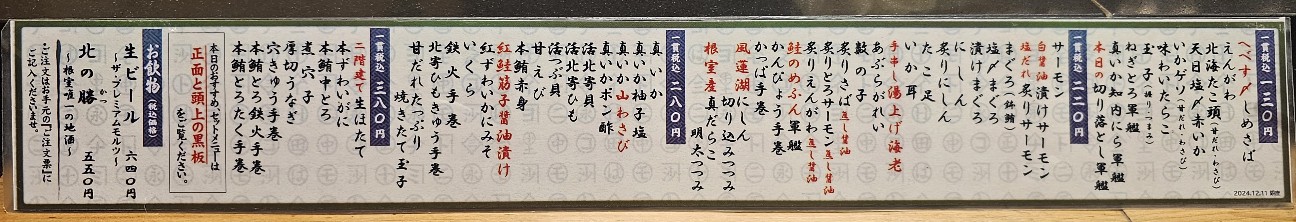 一貫税込 一三〇円
へべす〆 しめさば
えんがわ
北海たこ頭（甘だれ・わさび）
天日塩〆赤いか
いかゲソ（甘だれ・わさび）
味わいたらこ
玉子（握り・つまみ）
ねぎとろ軍艦
真いか知内にら軍艦
本日の切り落とし軍艦
一貫税込 二二〇円
サーモン
白醤油漬けサーモン
塩だれ炙りサーモン
まぐろ（鉢鮪）
塩〆まぐろ
漬けまぐろ
にしん
たこ足
いか耳
手串し湯上げ海老
あぶらがれい
数の子
炙りえんがわ返し醤油
炙りとろサーモン返し醤油
炙りさば返し醤油
鮭のめふん軍艦
かんぴょう手巻
かっぱ手巻
風蓮湖にしん 切り込みつつみ
根室産真だらこ 明太つつみ
一貫税込 二八〇円
真いか
真いか柚子塩
真いか山わさび
真いかポン酢
活北寄貝
活北寄ひも
活つぶ貝
甘えび
本鮪赤身
紅鮭筋子醤油漬け
紅ずわいかにみそ
いくら
鉄火手巻
北寄ひもきゅう手巻
甘だれたっぷり 焼きたて玉子
一貫税込 三八〇円
二階建て生ほたて
本ずわいがに
本鮪中とろ
煮穴子
厚切りうなぎ
穴きゅう手巻
本鮪とろ鉄火手巻
本鮪とろたく手巻
本日のおすすめ、セットメニューは
正面と頭上の黒板
をご覧ください。
お飲物（税込価格）
生ビール 六四〇円
〜ザ・プレミアムモルツ〜
北の勝 五五〇円
かつ
〜根室唯一の地酒〜
ご注文はお手元の『ご注文票』に
ご記入くださいませ。
2024.12.11 銀座